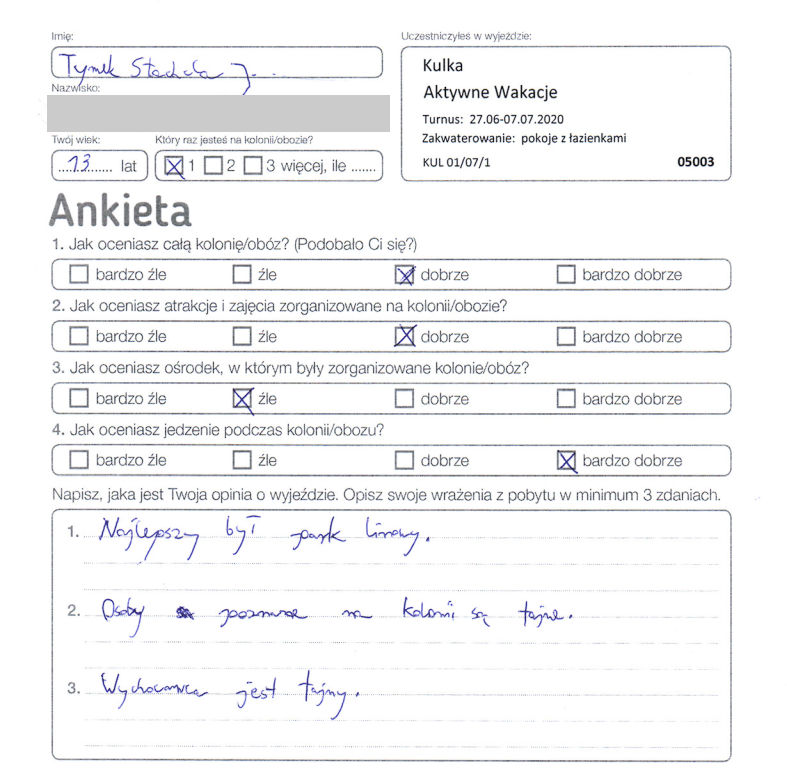 Imię:
Tymek
Nazwisko:
Twój wiek:
13 lat
Który raz jesteś na kolonii/obozie?
1 2 3 więcej, ile .......
Uczestniczyłeś w wyjeździe:
Kulka
Aktywne Wakacje
Turnus: 27.06-07.07.2020
Zakwaterowanie: pokoje z łazienkami
KUL 01/07/1 05003
Ankieta
1. Jak oceniasz całą kolonię/obóz? (Podobało Ci się?)
bardzo źle źle dobrze bardzo dobrze
2. Jak oceniasz atrakcje i zajęcia zorganizowane na kolonii/obozie?
bardzo źle źle dobrze bardzo dobrze
3. Jak oceniasz ośrodek, w którym były zorganizowane kolonie/obóz?
bardzo źle źle dobrze bardzo dobrze
4. Jak oceniasz jedzenie podczas kolonii/obozu?
bardzo źle źle dobrze bardzo dobrze
Napisz, jaka jest Twoja opinia o wyjeździe. Opisz swoje wrażenia z pobytu w minimum 3 zdaniach.
1. Najlepszy był park linowy.
2. Osoby poznane na kolonii są fajne.
3. Wychowawca jest fajny.